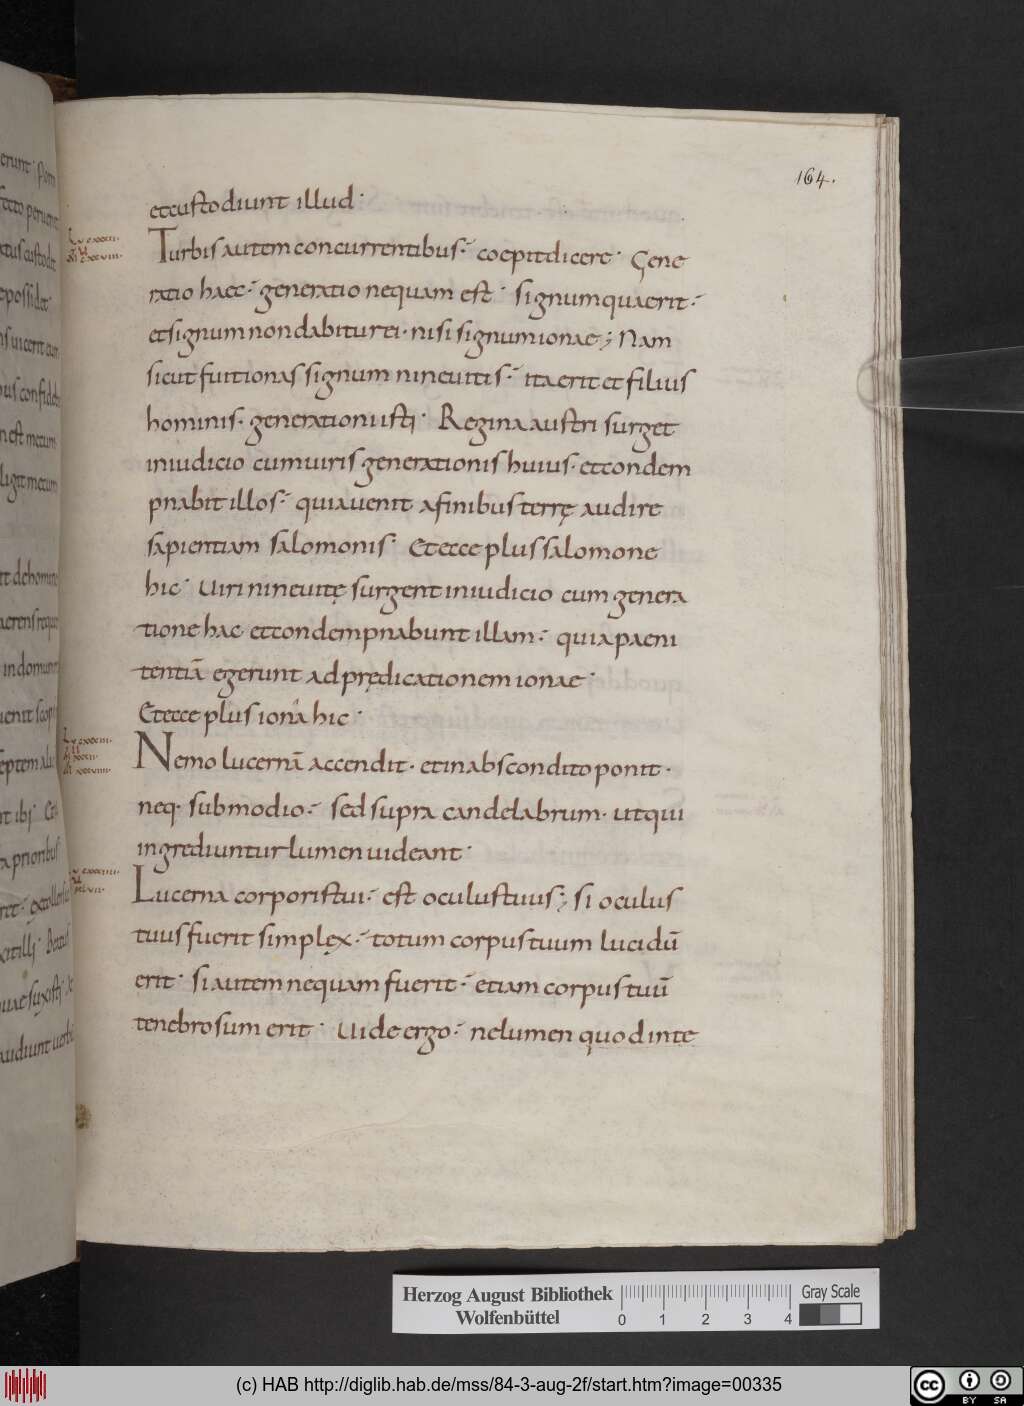 164.
et custodiunt illud·
Turbis autem concurrentibus· coepit dicere· Gene
ratio haec· generatio nequam est· signum quaerit·
et signum non dabitur ei· nisi signum ionae; Nam
sicut fuit ionas signum nineuitis· ita erit et filius
hominis· generationi isti· Regina austri surget
in iudicio cum uiris generationis huius· et condem
pnabit illos· quia uenit a finibus terrę audire
sapientiam salomonis· Et ecce plus salomone
hic· Uiri nineuitę surgent in iudicio cum genera
tione hac et condempnabunt illam· quia paeni
tentiā egerunt ad prędicationem ionae·
Et ecce plus iona hic·
Nemo lucernā accendit· et in abscondito ponit·
neq· sub modio· sed supra candelabrum· ut qui
ingrediuntur lumen uideant·
Lucerna corporis tui· est oculus tuus; si oculus
tuus fuerit simplęx· totum corpus tuum lucidū
erit· si autem nequam fuerit· etiam corpus tuū
tenebrosum erit· Uide ergo· ne lumen quod in te
Herzog August Bibliothek
Wolfenbüttel
0 1 2 3 4
Gray Scale
(c) HAB http://diglib.hab.de/mss/84-3-aug-2f/start.htm?image=00335
cc BY SA